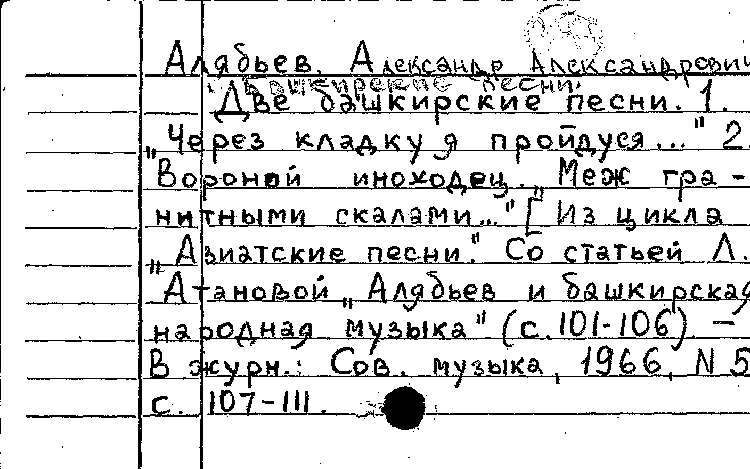 Алябьев. Александр Александрович
Башкирские песни.
Две башкирские песни. 1.
„Через кладку я пройдуся..." 2.
Вороной иноходец. „Меж гра-
нитными скалами..." [Из цикла
„Азиатские песни." Со статьей Л.
Атановой „Алябьев и башкирская
народная музыка" (с. 101-106) –
В журн.: Сов. музыка, 1966, N 5
с. 107-111.